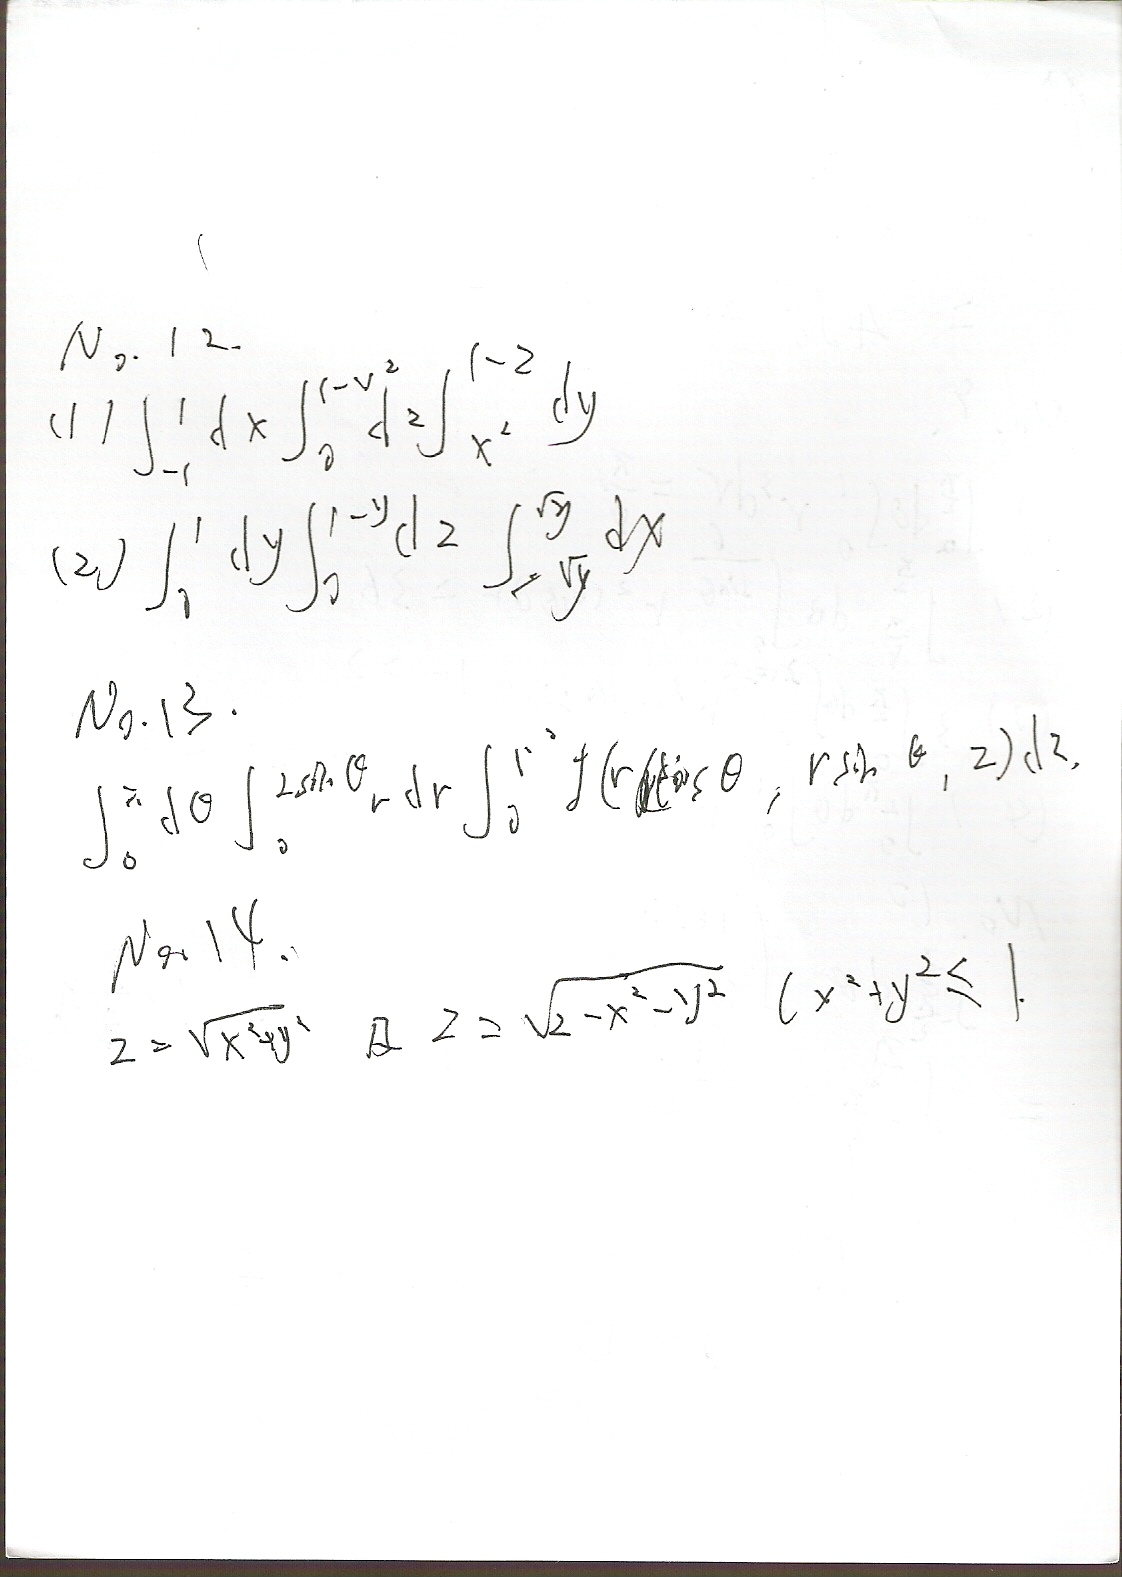 No. 12.
(1) ∫_{-1}^{1} dx ∫_{0}^{1-x^2} dz ∫_{x^2}^{1-z} dy
(2) ∫_{0}^{1} dy ∫_{0}^{1-y} dz ∫_{-√y}^{√y} dx
No. 13.
∫_{0}^{π} dθ ∫_{0}^{2sinθ} r dr ∫_{0}^{r^2} f(r cosθ, r sinθ, z) dz.
No. 14.
z = √(x^2+y^2) 及 z = √(2-x^2-y^2) (x^2+y^2 ≤ 1.